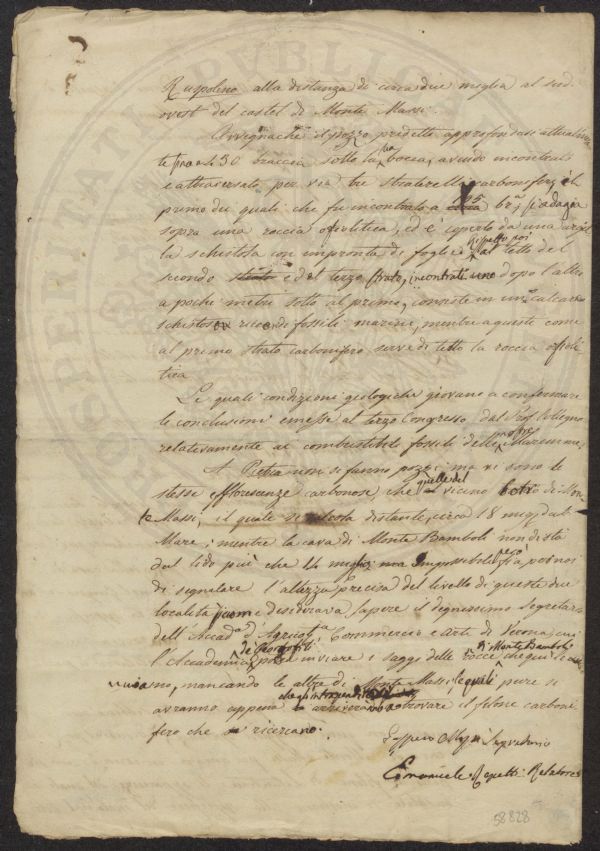 Ruspolino alla distanza di circa due miglia al sud-
ovest del castel di Monte Massi.
Avvegnachè il pozzo predetto approfondasi attualmen
te fra le 30 braccia sotto la sua bocca, avendo incontrati
e attraversato per via tre straterelli carboniferi, il
primo dei quali che fu incontrato a 195 br.ª si adagia
sopra una roccia ofiolitica, ed è coperto da una argil
la schistosa con impronta di foglie; rispetto poi al tetto del
secondo e del terzo strato, incontrati uno dopo l'altro
a poche metri sotto al primo, consiste in una calcarea
schistosa ricca di fossili marini, mentre a queste come
al primo strato carbonifero serve di letto la roccia ofioli
tica.
Le quali condizioni geologiche giovano a confermare
le conclusioni emesse al terzo Congresso dal Prof. Pilla
relativamente ai combustibili fossili delle nostre Maremme.
A Pietra non si fanno pozzi; ma vi sono le
stesse efflorescenze carbonose, che quelle del vicino botro di Mon
te Massi, il quale distante, circa 18 miglia dal
Mare; mentre la cava di Monte Bamboli non dista
dal lido più che 14 miglia ma impossibile però fia per noi
di segnalare l'altezza precisa del livello di queste due
località siccome desiderava sapere il degnissimo Segretario
dell'Accad.ª d'Agricol.ª Commercio e Arti di Verona, cui
l'Accademia de' Georgofili potrà inviare i saggi delle rocce di Monte Bamboli che qui si
uniscono, mancando le altre di Monte Massi, le quali pure si
avranno appena che gl'intraprendenti arriveranno a ritrovare il filone carboni
fero che ricercano.
Emanuele Repetti Relatore
58828